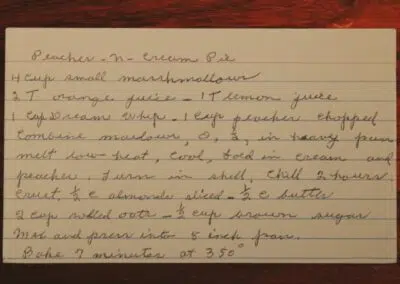 Peaches - N - Cream Pie
4 Cup small marshmallows
2 T orange juice - 1 T lemon juice
1 Cup Dream Whip - 1 Cup peaches chopped
Combine mallows, O, &, in heavy pan
melt low heat, Cool, fold in cream and
peaches. Turn in shell, Chill 2 hours
Crust, ½ C almonds sliced - ½ C butter
2 Cup rolled oats - ½ Cup brown sugar
Mix and press into 8 inch pan.
Bake 7 minutes at 350°